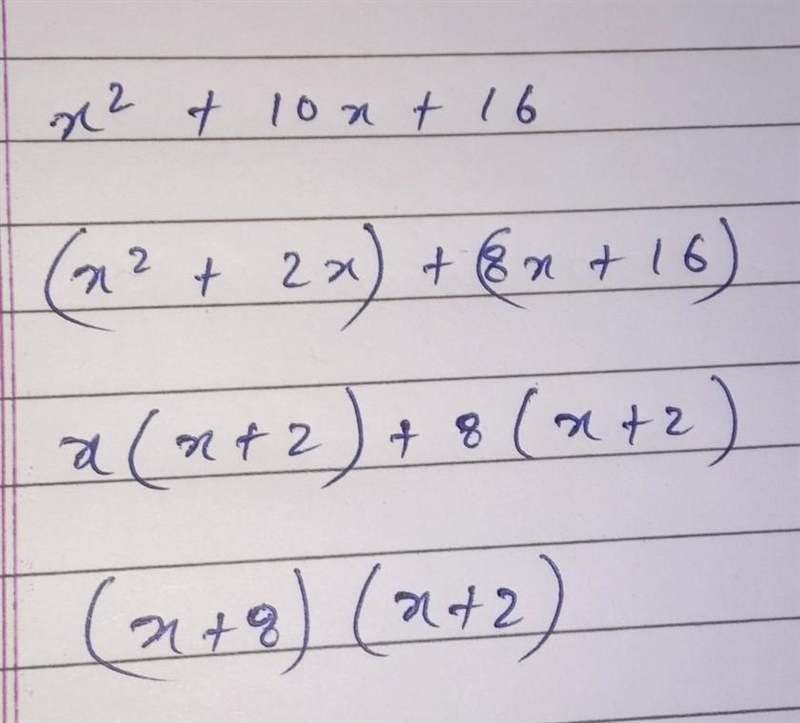 x² + 10x + 16
(x² + 2x) + (8x + 16)
x(x+2) + 8(x+2)
(x+8)(x+2)